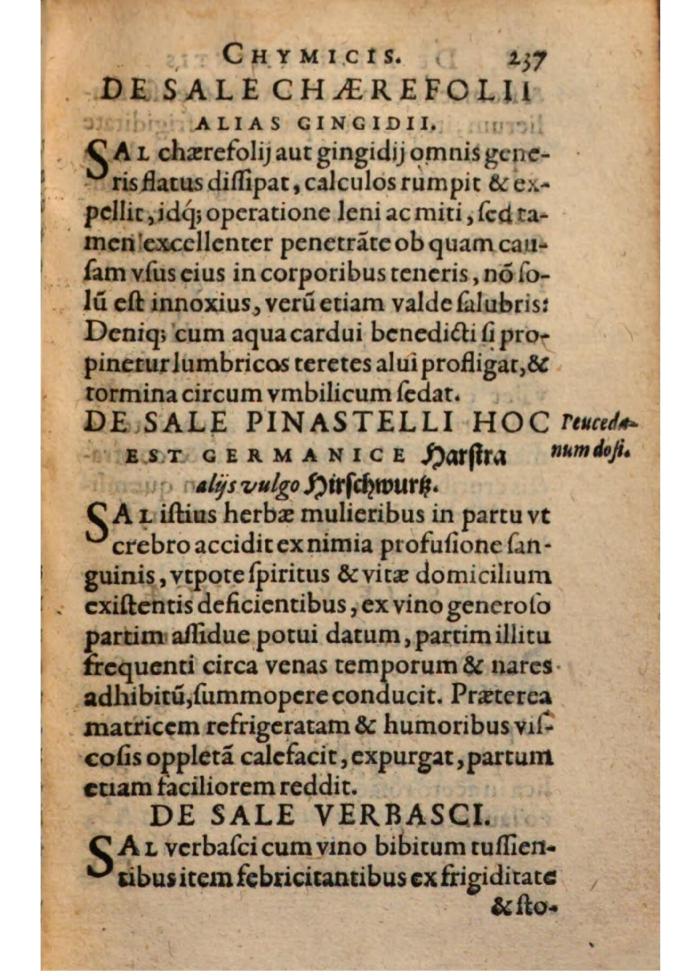 CHYMICIS. 237
DE SALE CHÆREFOLII
ALIAS GINGIDII.
SAL chærefolij aut gingidij omnis gene-
ris flatus dissipat, calculos rumpit & ex-
pellit, idq́; operatione leni ac miti, sed ta-
men excellenter penetrãte ob quam cau-
sam vsus eius in corporibus teneris, nõ so-
lũ est innoxius, verũ etiam valde salubris:
Deniq; cum aqua cardui benedicti si pro-
pinetur lumbricos teretes alui profligat, &
tormina circum vmbilicum sedat.
DE SALE PINASTELLI HOC Peuceda-
EST GERMANICE Harstra num dosi.
alijs vulgo Hirschwurtz.
SAL istius herbæ mulieribus in partu vt
crebro accidit ex nimia profusione san-
guinis, vtpote spiritus & vitæ domicilium
existentis deficientibus, ex vino generoso
partim assidue potui datum, partim illitu
frequenti circa venas temporum & nares
adhibitũ, summopere conducit. Præterea
matricem refrigeratam & humoribus vis-
cosis oppletã calefacit, expurgat, partum
etiam faciliorem reddit.
DE SALE VERBASCI.
SAL verbasci cum vino bibitum tussien-
tibus item febricitantibus ex frigiditate
& sto-